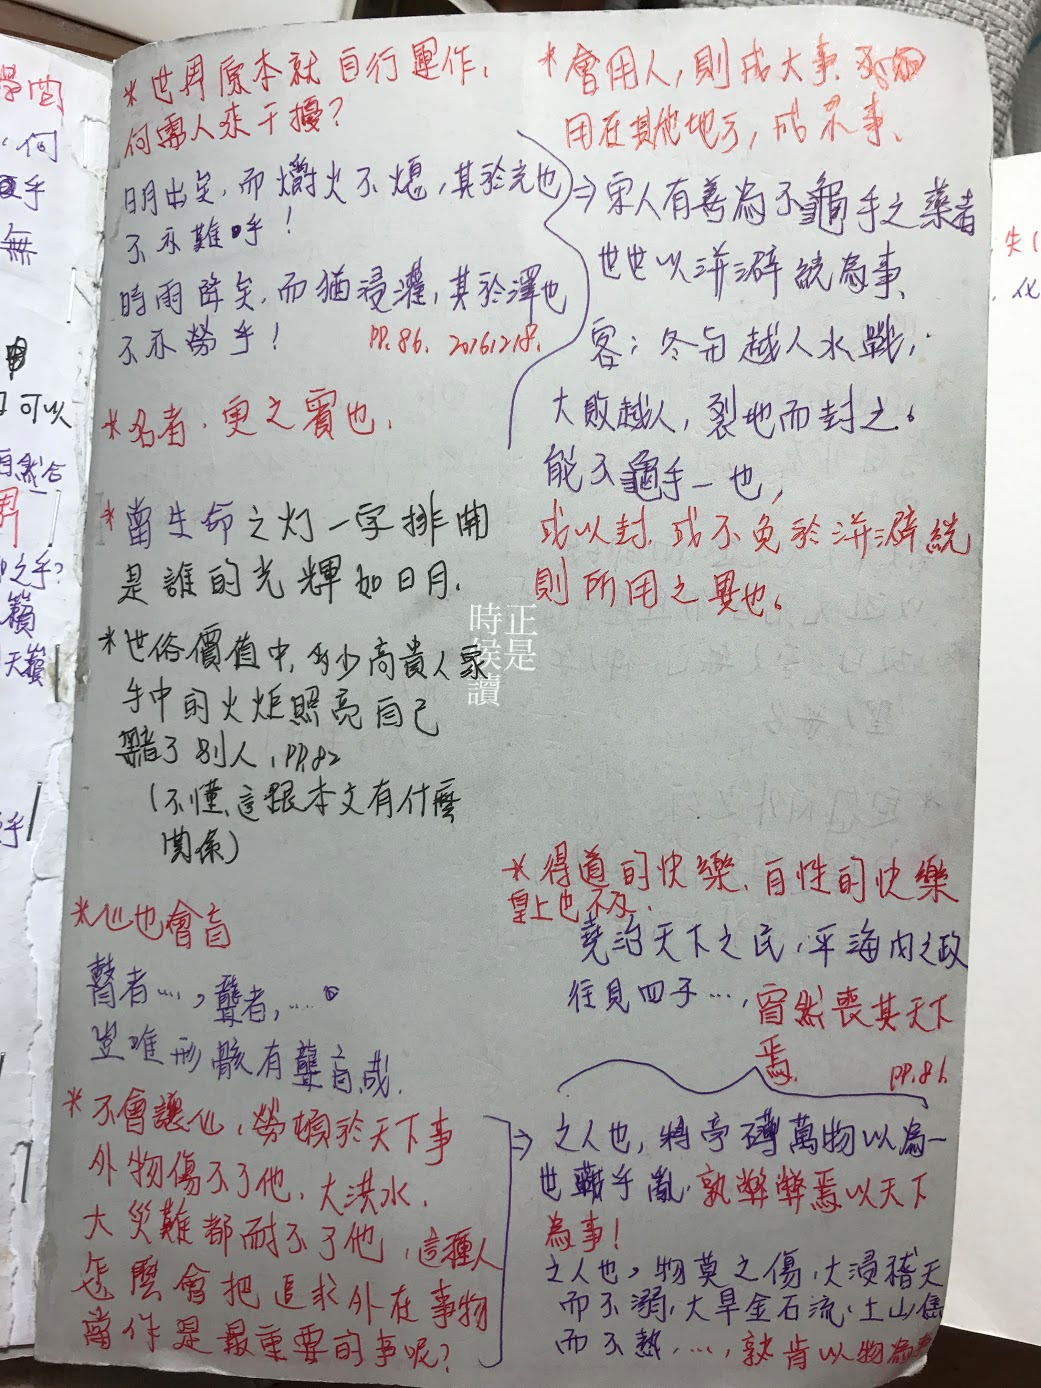 *世界原本就自行運作,
何需人來干擾?
日月出矣,而爝火不熄,其於光也
不亦難乎!
時雨降矣,而猶浸灌,其於澤也
不亦勞乎!
PP.86. 20161218.
*名者,
之賓也,
*當生命之灯一字排開
是誰的光輝如日月.
*世俗價值中,多少高貴人家
手中的火炬照亮自己
黯了別人,PP.82
(不懂,這跟本文有什麼
關係)
*心也會盲
瞽者…,聾者,…。
豈唯形骸有聾盲哉.
*不會讓心,勞頓於天下事
外物傷不了他,大洪水,
大災難都耐不了他,這種人
怎麼會把追求外在事物
當作是最重要的事呢?
*會用人,則成大事,
用在其他地方,成不事、
⇒宋人有善為不龜手之藥者
世世以洴澼絖為事、
客:冬与越人水戰,
大敗越人,裂地而封之。
能不龜手一也,
或以封,或不免於洴澼絖
則所用之異也。
正是
時侯讀
*得道的快樂、百性的快樂
皇上也不及.
堯治天下之民,平海內之政
往見四子…,窅然喪其天下
焉.
PP.86.
⇒之人也,將旁礡萬物以為一
世蘄乎亂,孰弊弊焉以天下
為事!
之人也,物莫之傷,大浸稽天
而不溺,大旱金石流,土山焦
而不熱,…,孰肯以物為事
學問
何
乎
無
可以
自然
之乎?
籟
天籟
乎
失